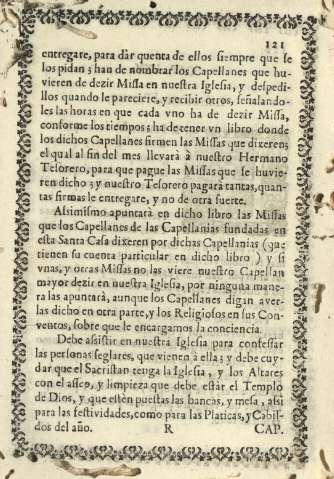 121
entregare, para dàr quenta de ellos siempre que se
los pidan; han de nombrar los Capellanes que hu-
vieren de dezir Missa en nuestra Iglesia, y despedi-
llos quando le pareciere, y recibir otros, señalando-
les las horas en que cada vno ha de dezir Missa,
conforme los tiempos; ha de tener vn libro donde
los dichos Capellanes firmen las Missas que dixeren;
el qual al fin del mes llevarà à nuestro Hermano
Tesorero, para que pague las Missas que se huvie-
ren dicho; y nuestro Tesorero pagarà tantas, quan-
tas firmas le entregare, y no de otra suerte.
Assimismo apuntarà en dicho libro las Missas
que los Capellanes de las Capellanias fundadas en
esta Santa Casa dixeren por dichas Capellanias (que
tienen su cuenta particular en dicho libro) y si
vnas, y otras Missas no las viere nuestro Capellan
mayor dezir en nuestra Iglesia, por ninguna mane-
ra las apuntarà, aunque los Capellanes digan aver-
las dicho en otra parte, y los Religiosos en sus Con-
ventos, sobre que le encargamos la conciencia.
Debe assistir en nuestra Iglesia para confessar
las personas seglares, que vienen à ella; y debe cuy-
dar que el Sacristan tenga la Iglesia, y los Altares
con el asseo, y limpieza que debe estàr el Templo
de Dios, y que estèn puestas las bancas, y mesa, assi
para las festividades, como para las Platicas, y Cabil-
dos del año. R CAP.